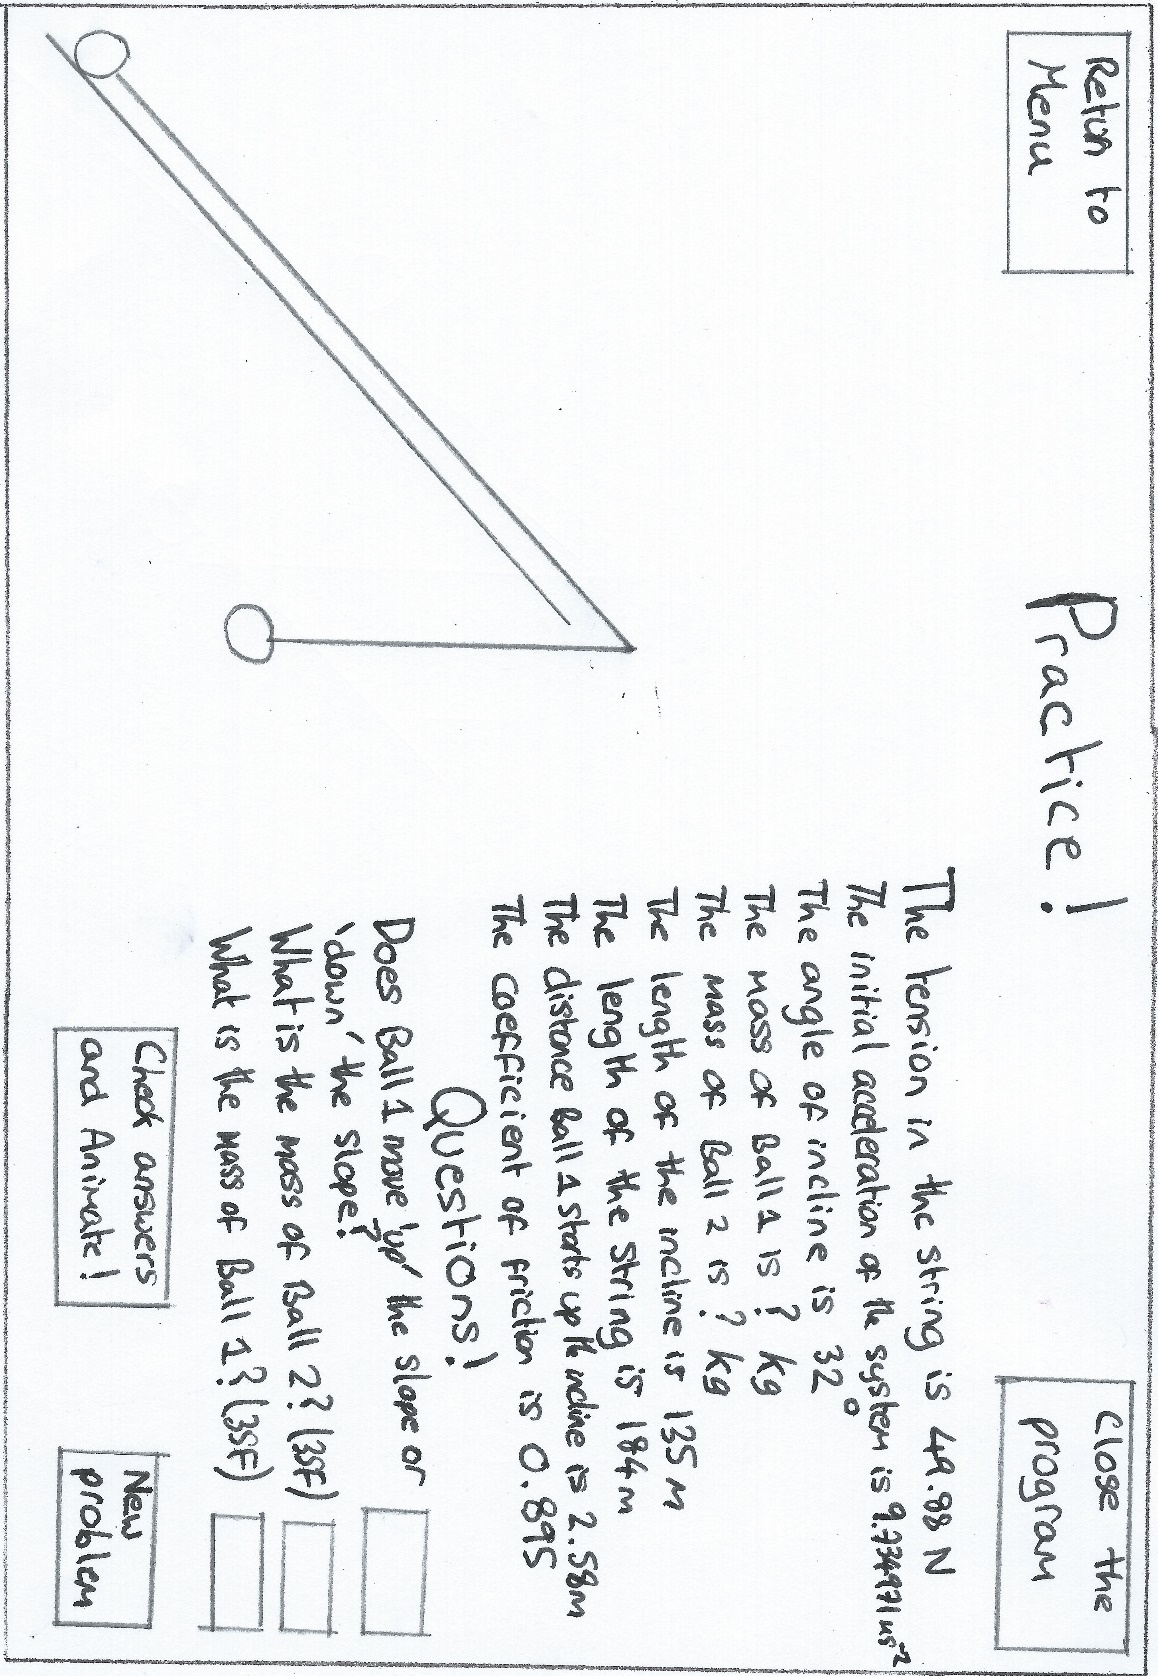 Retun to
Menu
Practice!
Close the
program
The tension in the string is 49.88 N
The initial acceleration of the system is 9.734971 ms⁻²
The angle of incline is 32°
The mass of Ball 1 is ? kg
The mass of Ball 2 is ? kg
The length of the incline is 135 m
The length of the string is 184 m
The distance Ball 1 starts up the incline is 2.58m
The coefficient of friction is 0.895
Questions!
Does Ball 1 move 'up' the slope or
'down' the slope?
What is the mass of Ball 2? (3SF)
What is the mass of Ball 1? (3SF)
Check answers
and Animate!
New
problem